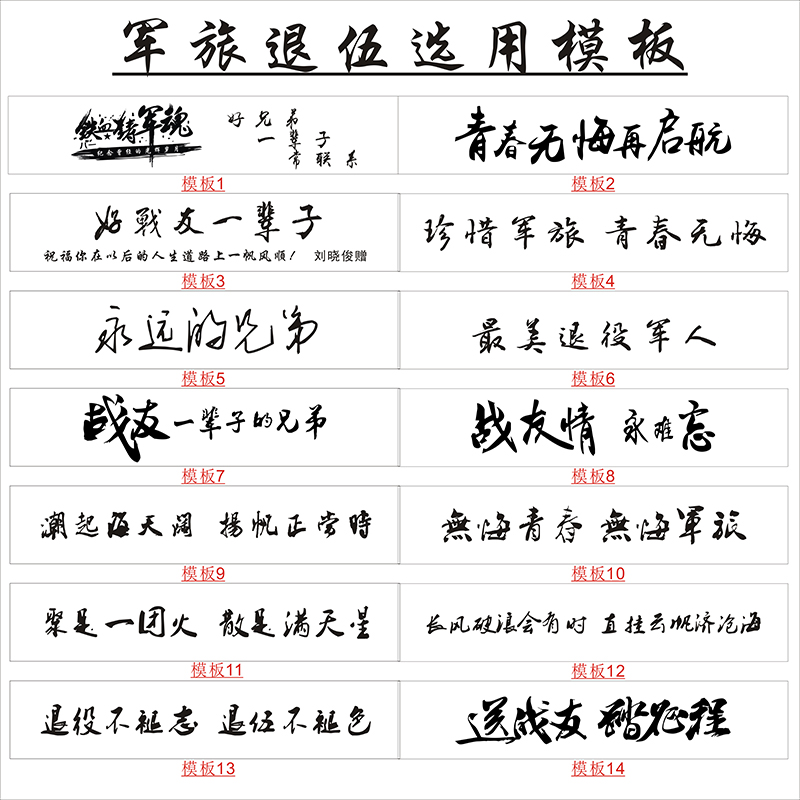 军旅退伍选用模板
铁血铸军魂
纪念曾经的光辉岁月
好兄弟
一辈子
常联系
模板1
青春无悔再启航
模板2
好戰友一辈子
祝福你在以后的人生道路上一帆风顺! 刘晓俊赠
模板3
珍惜军旅 青春无悔
模板4
永远的兄弟
模板5
最美退役军人
模板6
战友一辈子的兄弟
模板7
战友情 永难忘
模板8
潮起海天阔 揚帆正当時
模板9
無悔青春 無悔軍旅
模板10
聚是一团火 散是满天星
模板11
长风破浪会有时 直挂云帆济沧海
模板12
退役不褪志 退伍不褪色
模板13
送战友 踏征程
模板14